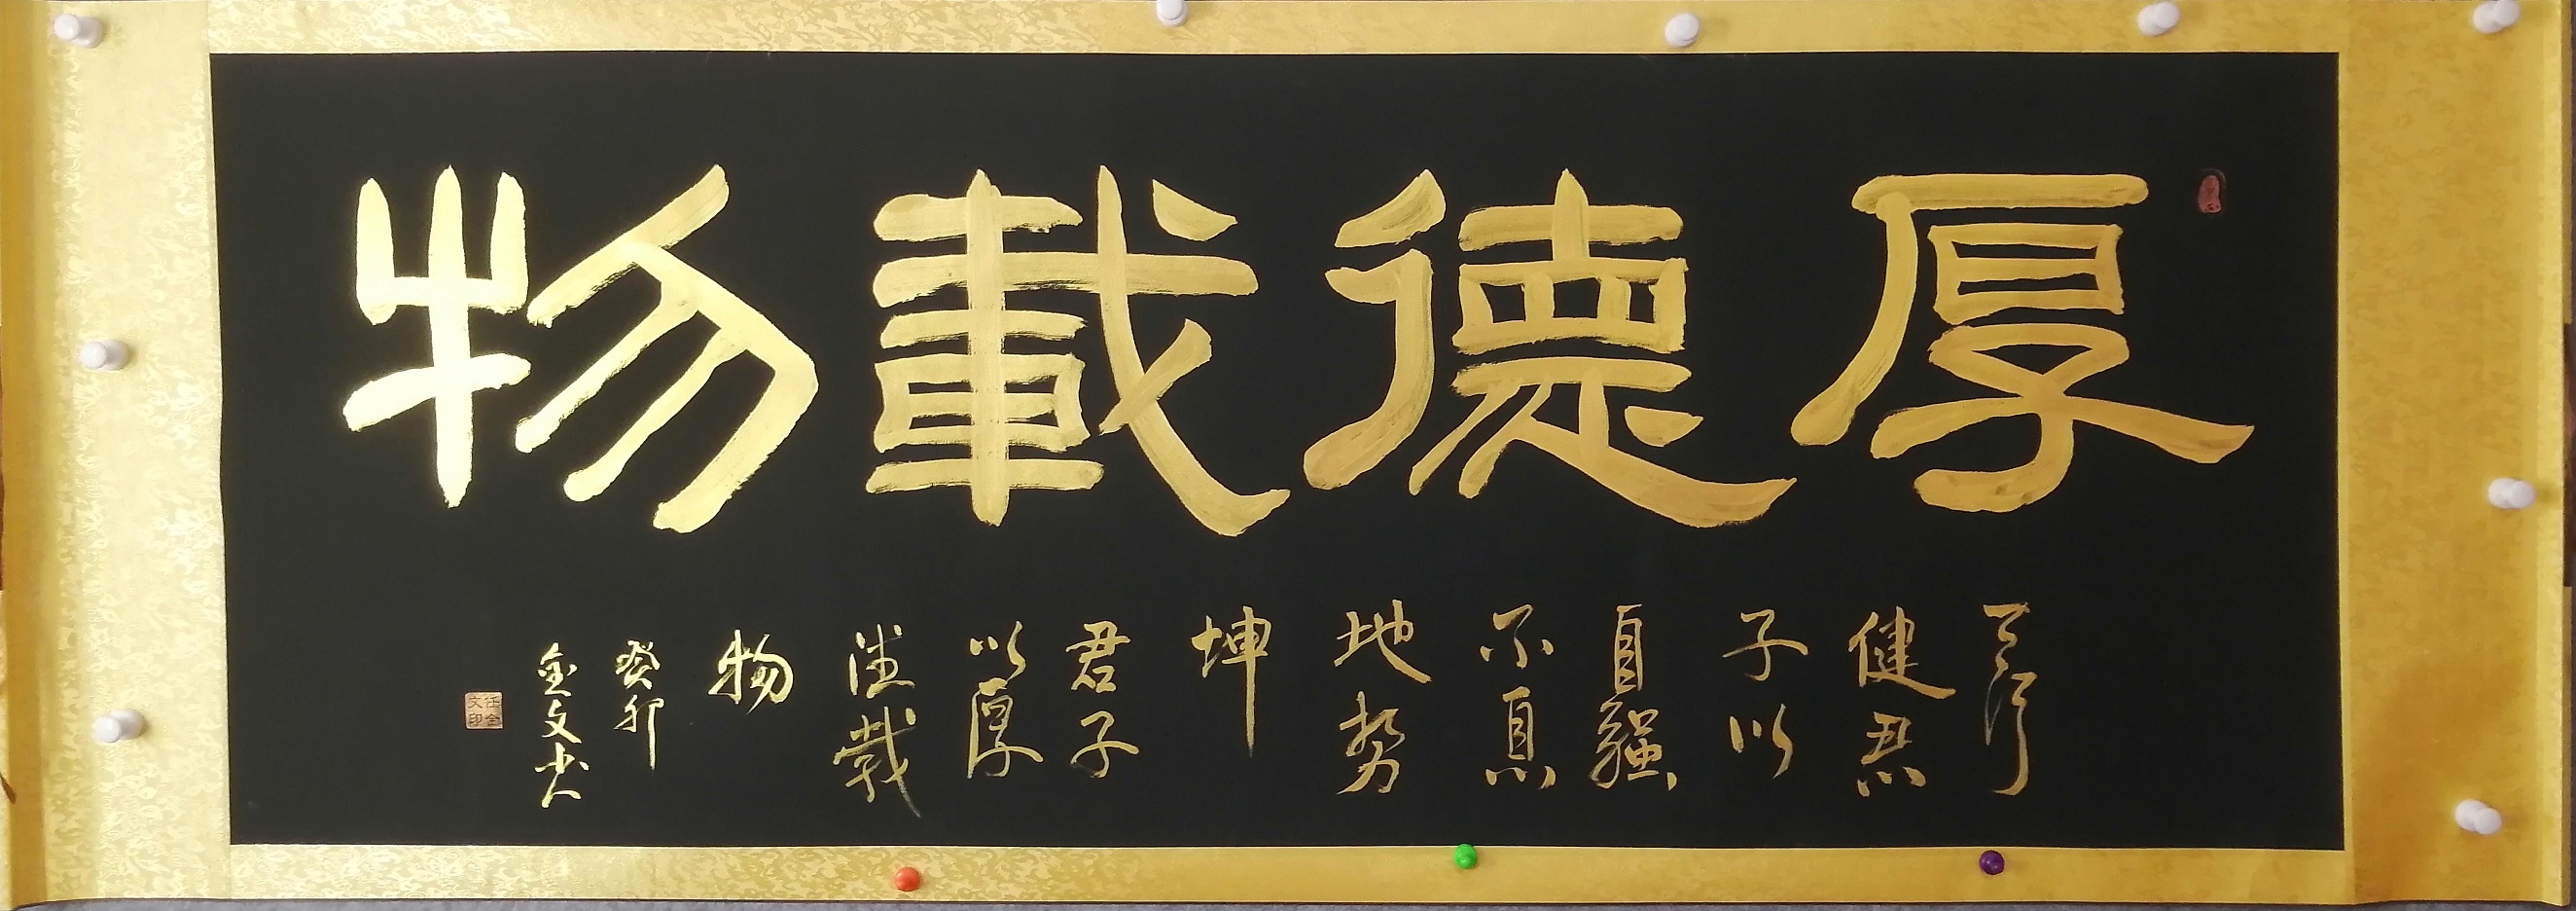 厚德載物
天行
健君
子以
自強
不息
地势
坤
君子
以厚
德载
物
癸卯
金文
任金文印